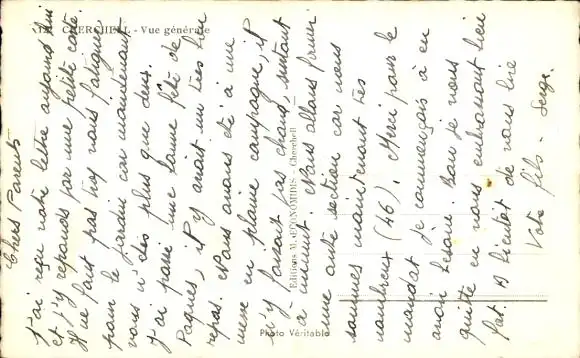 CHERCHELL - Vue générale
Chers Parents
J'ai reçu votre lettre aujourd'hui
et j'y reponds par une petite carte.
Il ne faut pas trop vous fatiguer
pour le jardin car maintenant
vous n'êtes plus que deux.
J'ai passé une bonne fête de
Paques, il y avait un très bon
repas. Nous avons été à une
messe en pleine campagne, il
n'y faisait pas chaud, surtout
à minuit. Nous allons former
une autre section car nous
sommes maintenant très
nombreux (46). Merci pour le
mandat je commençais à en
avoir besoin. Bon je vous
quitte en vous embrassant bien
fort. A bientot de vous lire
Votre fils - Serge.
Editions M. ECONOMIDIS - Cherchell
Photo Véritable